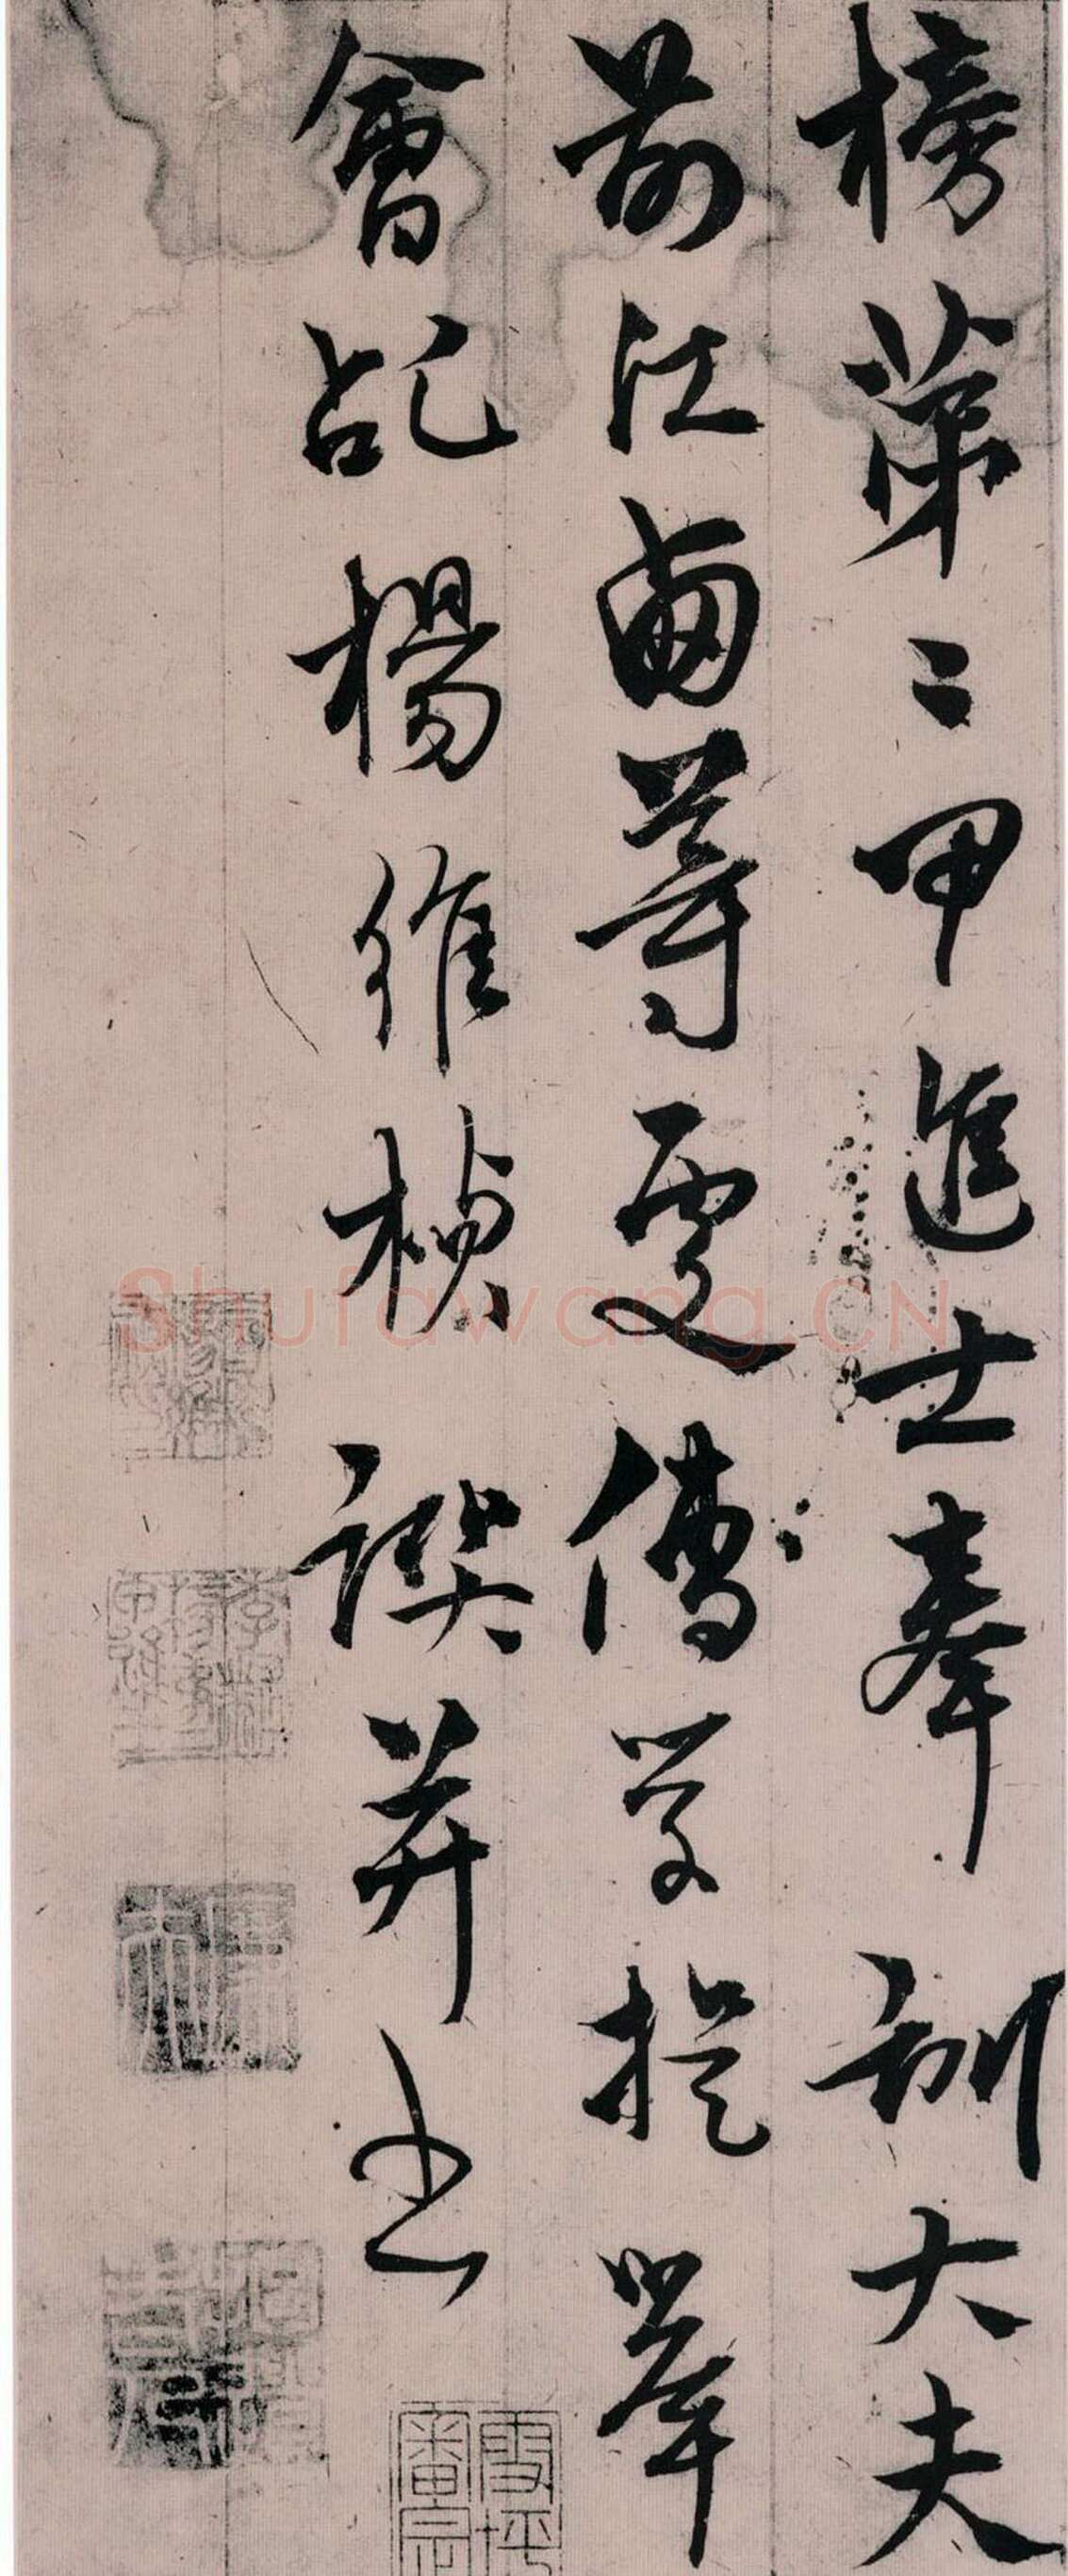 榜第二甲進士奉訓大夫
前江西等處儒学提舉
會𥡴楊維楨譔并书
Shufawang.CN